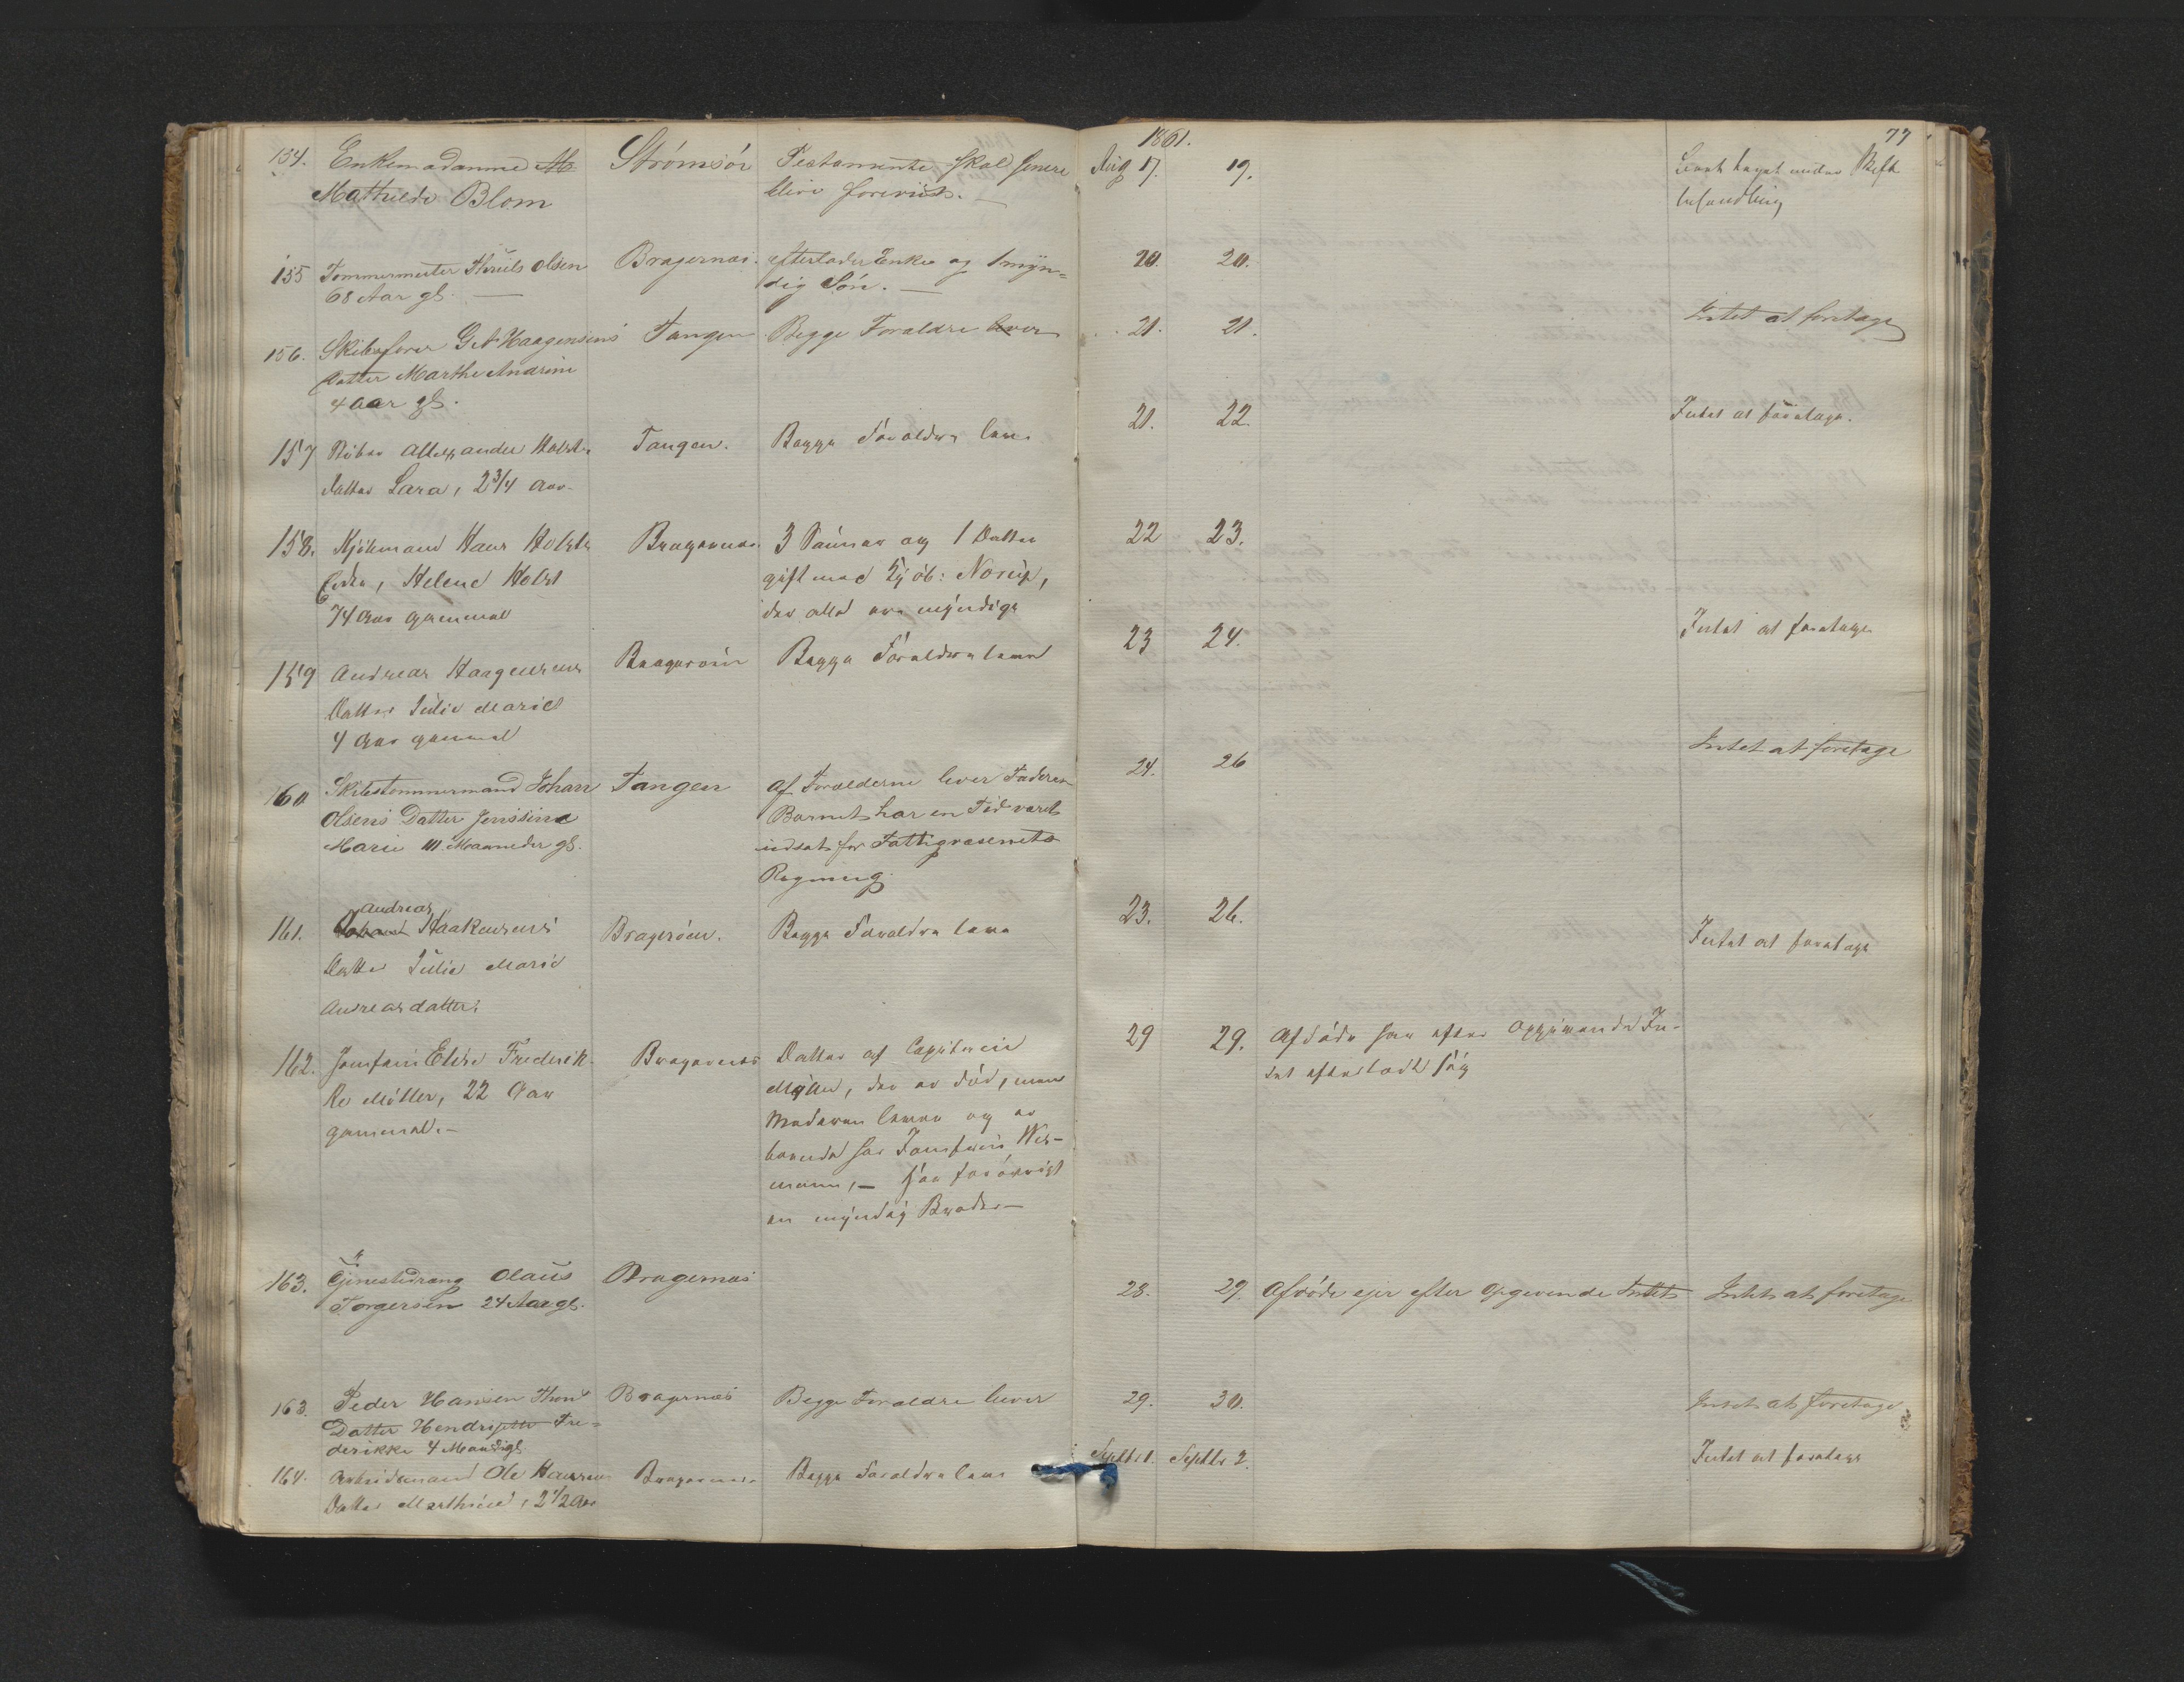 1861.
77
154. Enkemadamme M
Mathilde Blom
Strömsöe
Testamente skal senere
blive foreviist.
Aug 17. 19.
taget under Skifte
behandling
155 Tømmermester Thruls Olsen
68 Aar gl.
Bragernæs.
efterlader Enke og 1 myn-
dig Sön.
20. 20.
156. Skibsfører G A Haagensens
Datter Marthe Andrine
4 Aar gl.
Tangen
Begge Forældre lever
21. 21.
Intet at foretage
157 Allexander Holst
Datter Lara, 2 3/4 Aar
Tangen.
Begge Forældre leve
21. 22
Intet at foretage.
158. Kjöbmand Hans Holsts
Enke, Helene Holst
74 Aar gammel
Bragernæs
3 Sönner og 1 Datter
gift med Norup,
der alle ere myndige
22 23.
159 Andreas Haagensens
Datter Julie Marie
4 Aar gammel
Bragerøen
Begge Forældre leve
23 24.
Intet at foretage
160 Skibstømmermand Johan
Olsens Datter Jenssine
Marie 10 Maaneder gl.
Tangen
Af Forælderne lever Faderen
Barnet har en Tid været
indsat for Fattigvæsenets
Regning
24. 26
Intet at foretage
161. Andreas
Johan Haakensens
Datter Julie Marie
Andreasdatter
Bragerøen.
Begge Forældre leve
23. 26.
Intet at foretage
162. Jomfru Elise Frederik-
ke Möller, 22 Aar
gammel.
Bragernæs
Datter af Capitain
Möller, der er död, men
Moderen lever og er
boende hos Jomfru Wes-
mann, har forövrigt
en myndig Broder
29 29. Afdöde har efter Opgivende In-
tet efterladt sig
163. Tjenestedreng Olaus
Torgersen 24 Aar gl.
Bragernæs
28. 29. Afdöde ejer efter Opgivende Intet
Intet at foretage
163. Peder Hansen Thons
Datter Hendrijette Fre-
derikke 4 Maandr gl.
Bragernæs
Begge Forældre lever
29. 30.
Intet at foretage
164. Arbeidsmand Ole Hansens
Datter Marthine, 2 1/2 Aar
Bragernæs
Begge Forældre leve
Septbr 1. Septbr 2.
Intet at foretage